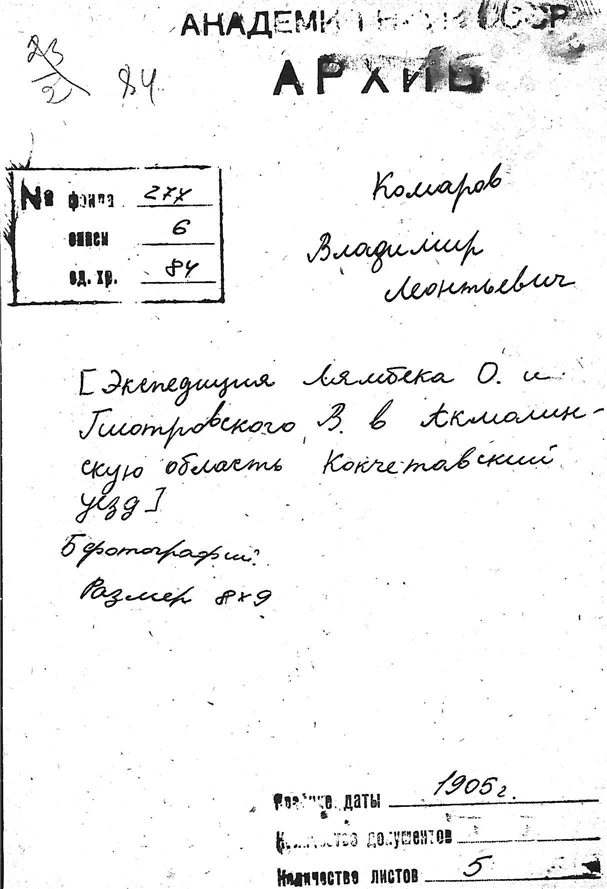 АКАДЕМИЯ НАУК СССР
АРХИВ
23
2
84
№ фонда 277
описи 6
ед. хр. 84
Комаров
Владимир
Леонтьевич
[Экспедиция Лямбека О. и
Пиотровского В. в Акмолин-
скую область Кокчетавский
уезд]
5 фотографий.
Размер 8х9
Крайние даты 1905 г.
Количество документов
Количество листов 5